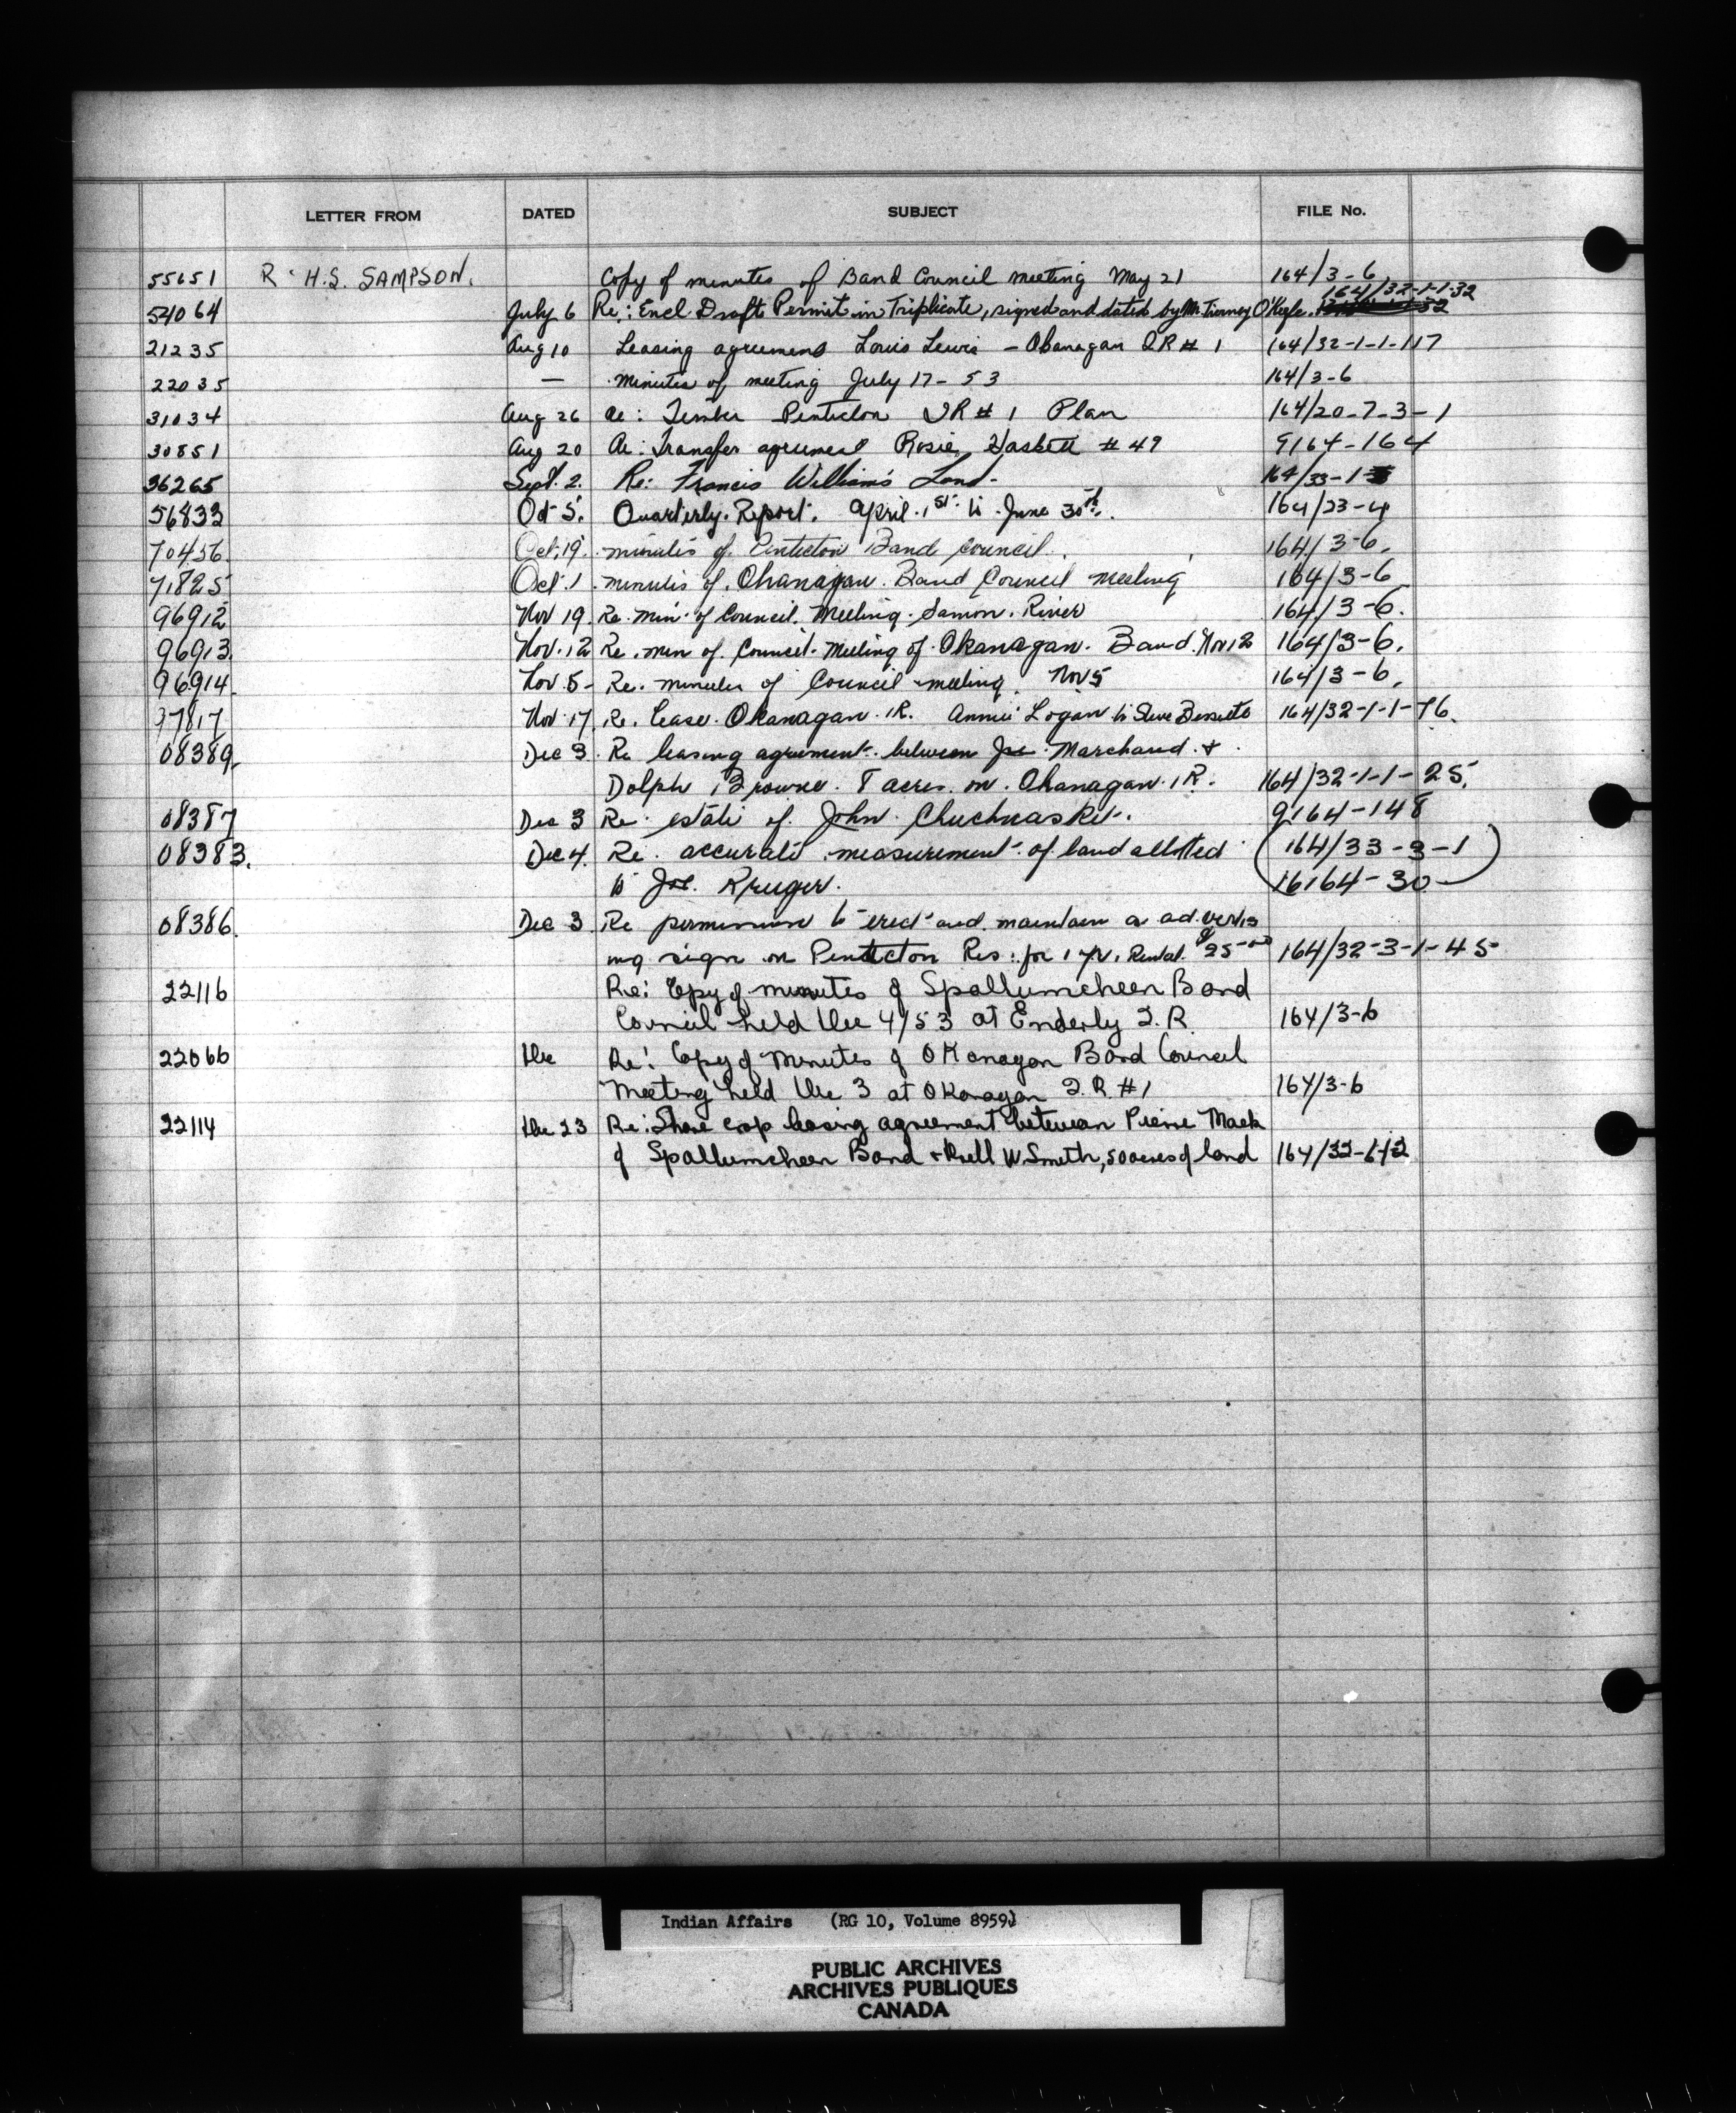 LETTER FROM DATED SUBJECT FILE No.
55651 R. H.S. SAMPSON. Copy of minutes of Band Council meeting May 21 164/3-6
164/32-1-1-32
54064 July 6 Re: Encl Draft Permit in Triplicate, signed and dated by Mr. Tierney O'Keefe.
21235 Aug 10 Leasing agreement Louis Lewis - Okanagan IR # 1 164/32-1-1-117
22035 — Minutes of meeting July 17-53 164/3-6
31034 Aug 26 Re: Timber Penticton IR # 1 Plan 164/20-7-3-1
30851 Aug 20 Re: Transfer agreement Rosie # 49 9164-164
36265 Sept. 2. Re: Francis William's Land- 164/33-1-
56833 Oct 5. Quarterly Report. April 1st to June 30th. 164/23-4
70456. Oct. 19. minutes of Penticton Band Council. 164/3-6.
71825 Oct 1. minutes of Okanagan Band Council Meeling 164/3-6
96912 Nov 19. Re. Min. of Council. Meeting. Samon. River 164/3-6.
96913. Nov. 12 Re. min of Council. Meeting of Okanagan. Band. Nov 12 164/3-6.
96914. Nov. 5- Re. minutes of Council meeting. Nov 5 164/3-6.
97817 Nov 17. Re. lease. Okanagan. IR. Annie Logan to Steve 164/32-1-1-76.
08389. Dec 3. Re leasing agreement. between Joe Marchand. &
Dolph Browne. 8 acres. on. Okanagan. IR. 164/32-1-1-25.
08387 Dec 3 Re. estate of. John Chuchuasket. 9164-148
08383. Dec 4. Re. accurate measurement of land alloted 164/33-3-1
to Joe. Kruger. 16164-30
08386. Dec 3. Re permission to erect and maintain a advertis
ing sign on Penticton Res. for 1 yr. Rental. $25-00 164/32-3-1-45-
22116 Re: Copy of minutes of Spallumcheen Band
Council held Dec 4/53 at Enderly I.R. 164/3-6
22066 Dec Re: Copy of Minutes of Okanagan Band Council
Meeting held Dec 3 at Okanagan I.R. #1 164/3-6
22114 Dec 23 Re: Share crop leasing agreement between Pierre Mack
of Spallumcheen Band & W. Smith, 50 acres of land 164/32-6-1-2
Indian Affairs (RG 10, Volume 8959)
PUBLIC ARCHIVES
ARCHIVES PUBLIQUES
CANADA